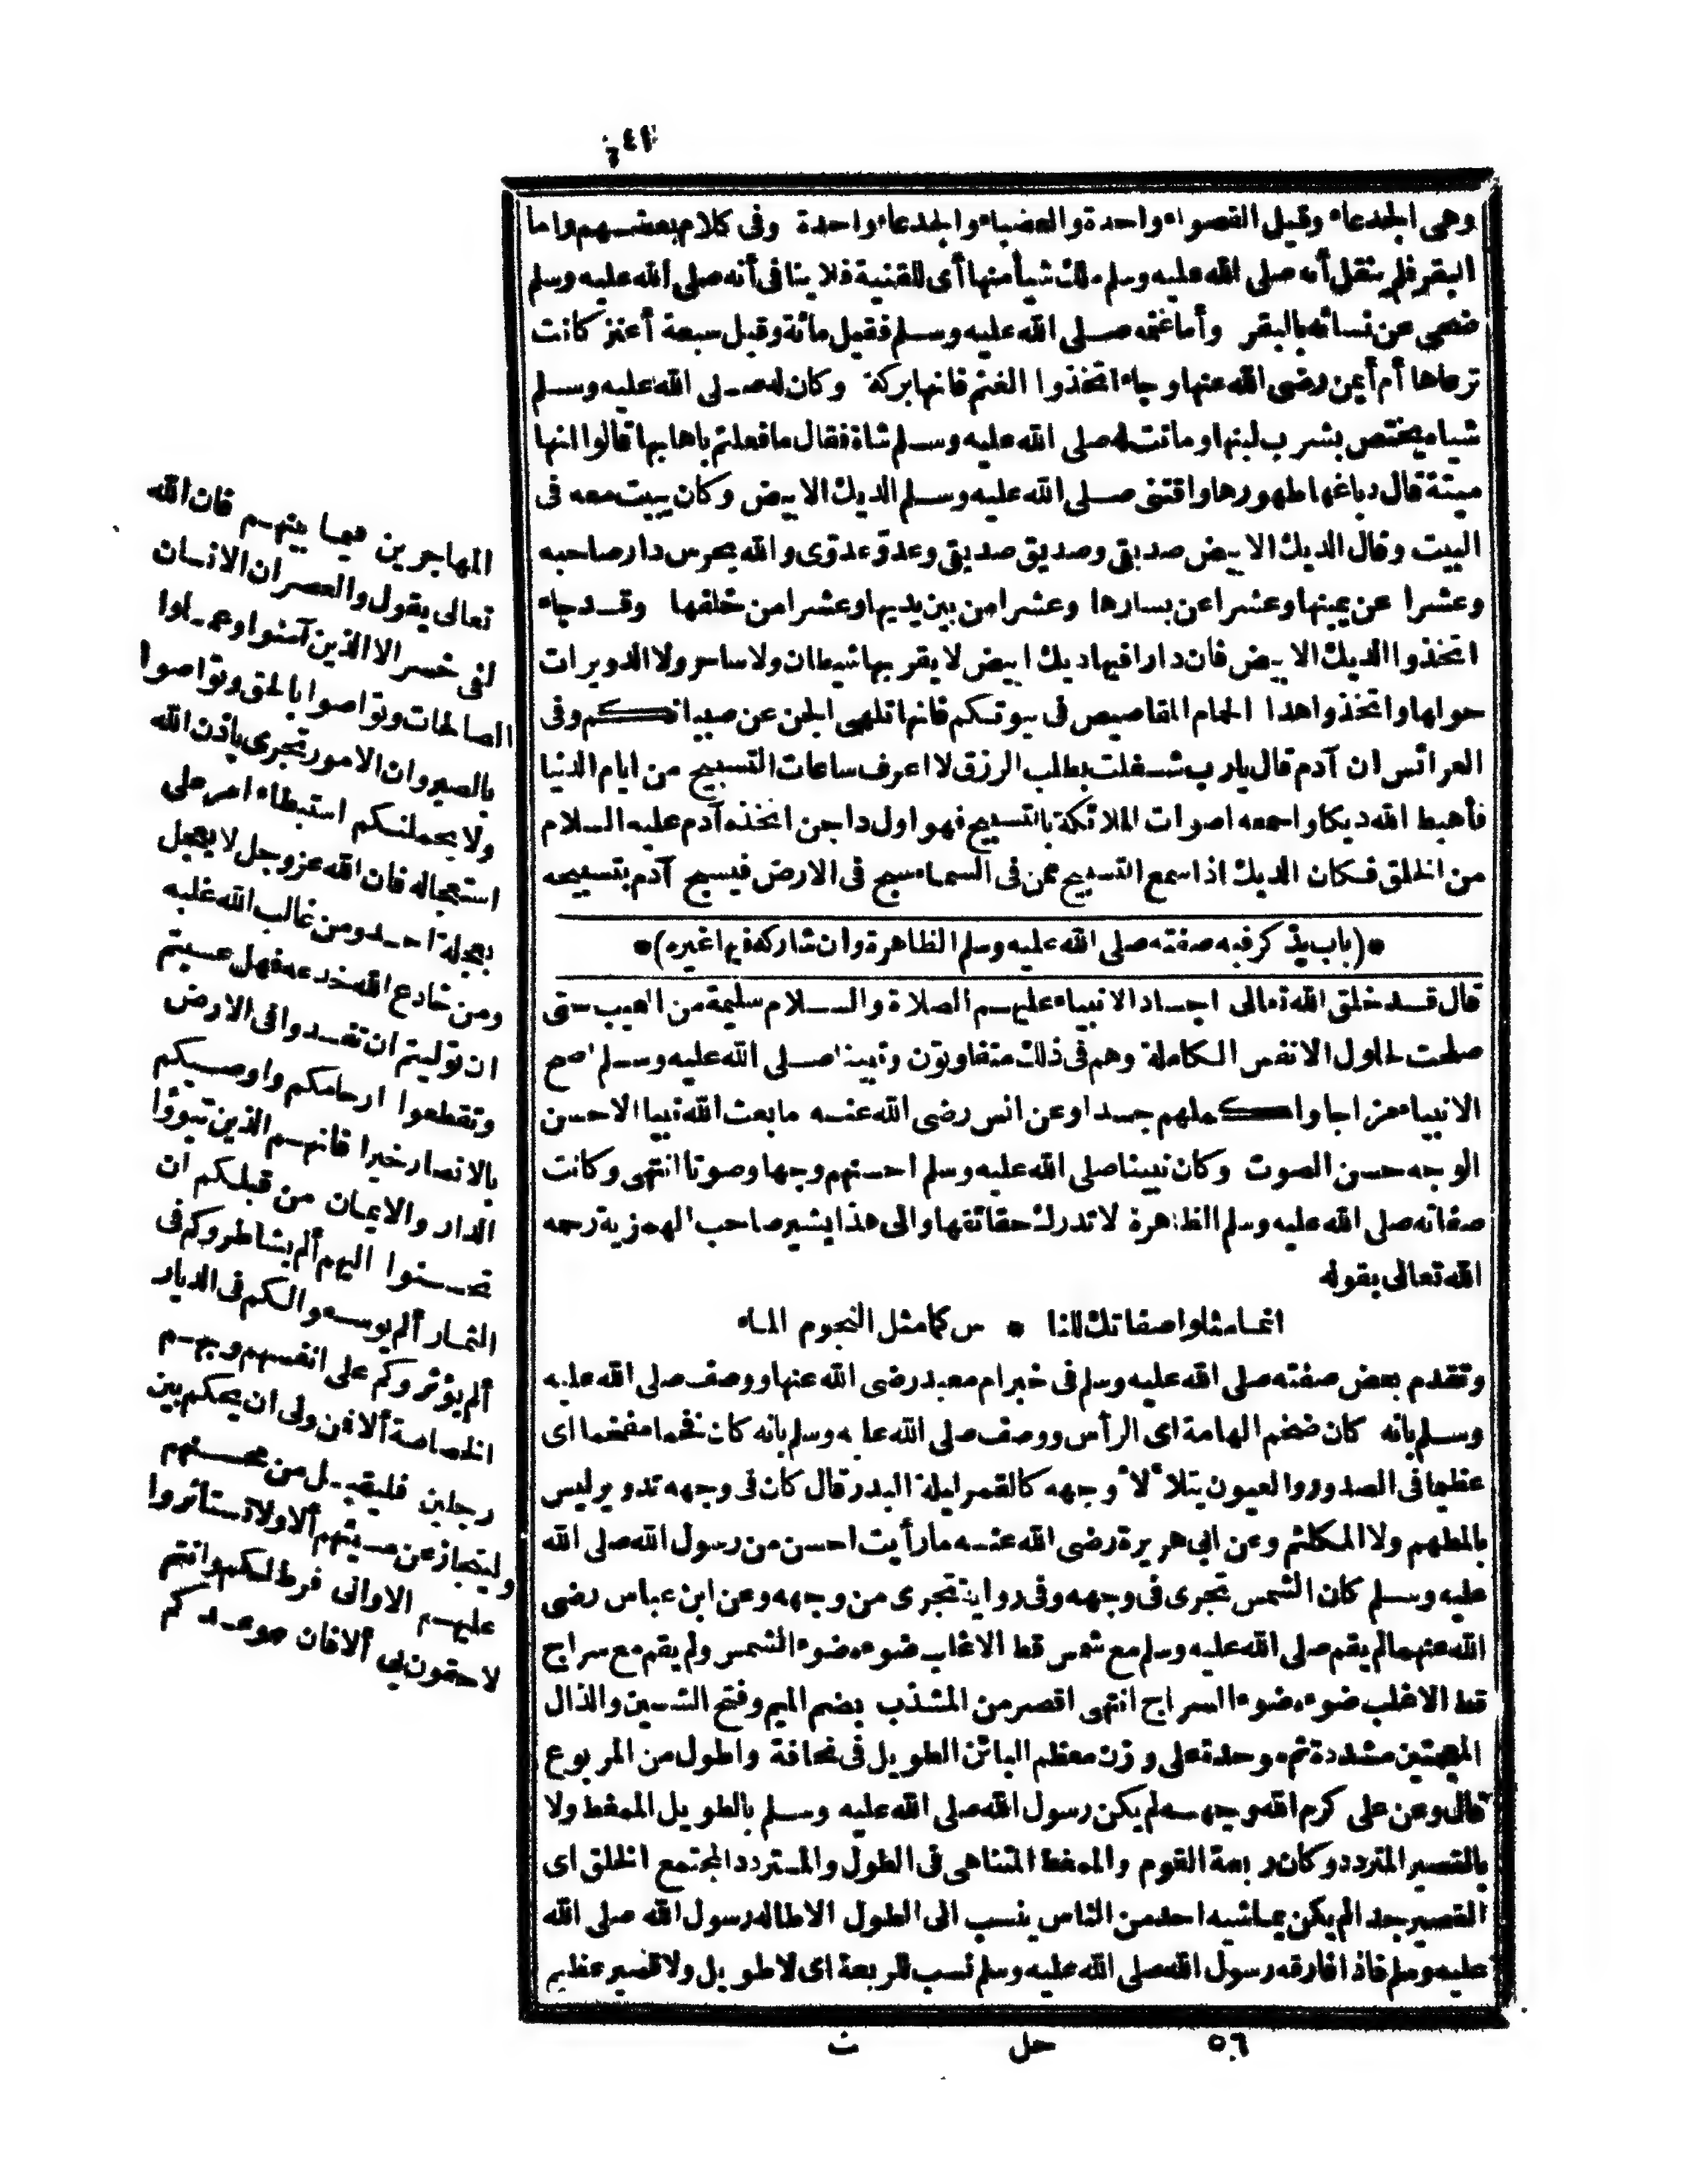 وهى الجدعاء وقيل القصواء واحدة والعضباء والجدعاء واحدة وفى كلام بعضهم واما
البقر فلم ينقل أنه صلى الله عليه وسلم ملك شيأ منها أى للقنية فلا ينافى أنه صلى الله عليه وسلم
ضحى عن نسائه بالبقر وأما غنمه صلى الله عليه وسلم فقيل مائة وقيل سبعة أعنز كانت
ترعاها أم أيمن رضى الله عنها وجاء اتخذوا الغنم فانها بركة وكان له صلى الله عليه وسلم
شياه يختص بشرب لبنها وماتت له صلى الله عليه وسلم شاة فقال ما فعلتم باهابها قالوا انها
ميتة قال دباغها طهورها واقتنى صلى الله عليه وسلم الديك الابيض وكان يبيت معه فى
البيت وقال الديك الابيض صديقى وصديق صديقى وعدو عدوى والله يحرس دار صاحبه
وعشرا عن يمينها وعشرا عن يسارها وعشرا من بين يديها وعشرا من خلفها وقد جاء
اتخذوا الديك الابيض فان دارا فيها ديك ابيض لا يقربها شيطان ولا ساحر ولا الدويرات
حولها واتخذوا هذا الحمام المقاصيص فى بيوتكم فانها تلهى الجن عن صبيانكم وفى
العرائس ان آدم قال يارب شغلت بطلب الرزق لا اعرف ساعات التسبيح من ايام الدنيا
فأهبط الله ديكا واسمعه اصوات الملائكة بالتسبيح فهو اول داجن اتخذه آدم عليه السلام
من الخلق فكان الديك اذا سمع التسبيح ممن فى السماء سبح فى الارض فيسبح آدم بتسبيحه
*(باب يذكر فيه صفته صلى الله عليه وسلم الظاهرة وان شاركه فيها غيره)*
قال قد خلق الله تعالى اجساد الانبياء عليهم الصلاة والسلام سليمة من العيب حتى
صلحت لحلول الانفس الكاملة وهم فى ذلك متفاوتون ونبينا صلى الله عليه وسلم اصح
الانبياء مزاجا واكملهم جسدا وعن انس رضى الله عنه ما بعث الله نبيا الا حسن
الوجه حسن الصوت وكان نبينا صلى الله عليه وسلم احسنهم وجها وصوتا انتهى وكانت
صفاته صلى الله عليه وسلم الظاهرة لا تدرك حقائقها والى هذا يشير صاحب الهمزية رحمه
الله تعالى بقوله
انما مثلوا صفاتك للنا * س كما مثل النجوم الماء
وتقدم بعض صفته صلى الله عليه وسلم فى خبر ام معبد رضى الله عنها ووصف صلى الله عليه
وسلم بانه كان ضخم الهامة اى الرأس ووصف صلى الله عليه وسلم بانه كان فخما مفخما اى
عظيما فى الصدور والعيون يتلألأ وجهه كالقمر ليلة البدر قال كان فى وجهه تدوير ليس
بالمطهم ولا المكلثم وعن ابى هريرة رضى الله عنه ما رأيت احسن من رسول الله صلى الله
عليه وسلم كان الشمس تجرى فى وجهه وفى رواية تجرى من وجهه وعن ابن عباس رضى
الله عنهما لم يقم صلى الله عليه وسلم مع شمس قط الا غلب ضوءه ضوء الشمس ولم يقم مع سراج
قط الا غلب ضوءه ضوء السراج انتهى اقصر من المشذب بضم الميم وفتح الشين والذال
المعجمتين مشددة ثم موحدة على وزن معظم البائن الطويل فى نحافة واطول من المربوع
قال وعن على كرم الله وجهه لم يكن رسول الله صلى الله عليه وسلم بالطويل الممغط ولا
بالقصير المتردد وكان ربعة القوم والممغط المتناهى فى الطول والمتردد المجتمع الخلق اى
القصير جدا لم يكن يماشيه احد من الناس ينسب الى الطول الا طاله رسول الله صلى الله
عليه وسلم فاذا فارقه رسول الله صلى الله عليه وسلم نسب للربعة اى لا طويل ولا قصير عظيم
المهاجرين فيما بينهم فان الله
تعالى يقول والعصر ان الانسان
لفى خسر الا الذين آمنوا وعملوا
الصالحات وتواصوا بالحق وتواصوا
بالصبر وان الامور تجرى باذن الله
ولا يحملنكم استبطاء امر على
استعجاله فان الله عز وجل لا يعجل
بعجلة احد ومن غالب الله غلبه
ومن خادع الله خدعه فهل عسيتم
ان توليتم ان تفسدوا فى الارض
وتقطعوا ارحامكم واوصيكم
بالانصار خيرا فانهم الذين تبوؤا
الدار والايمان من قبلكم ان
تحسنوا اليهم ألم يشاطروكم فى
الثمار ألم يوسعوا لكم فى الديار
ألم يؤثروكم على انفسهم وبهم
الخصاصة ألا فمن ولى ان يحكم بين
رجلين فليقبل من محسنهم
وليتجاوز عن مسيئهم ألا ولا تستأثروا
عليهم الا وانى فرط لكم وانتم
لاحقون بى ألا فان موعدكم
٥٦ حل ث